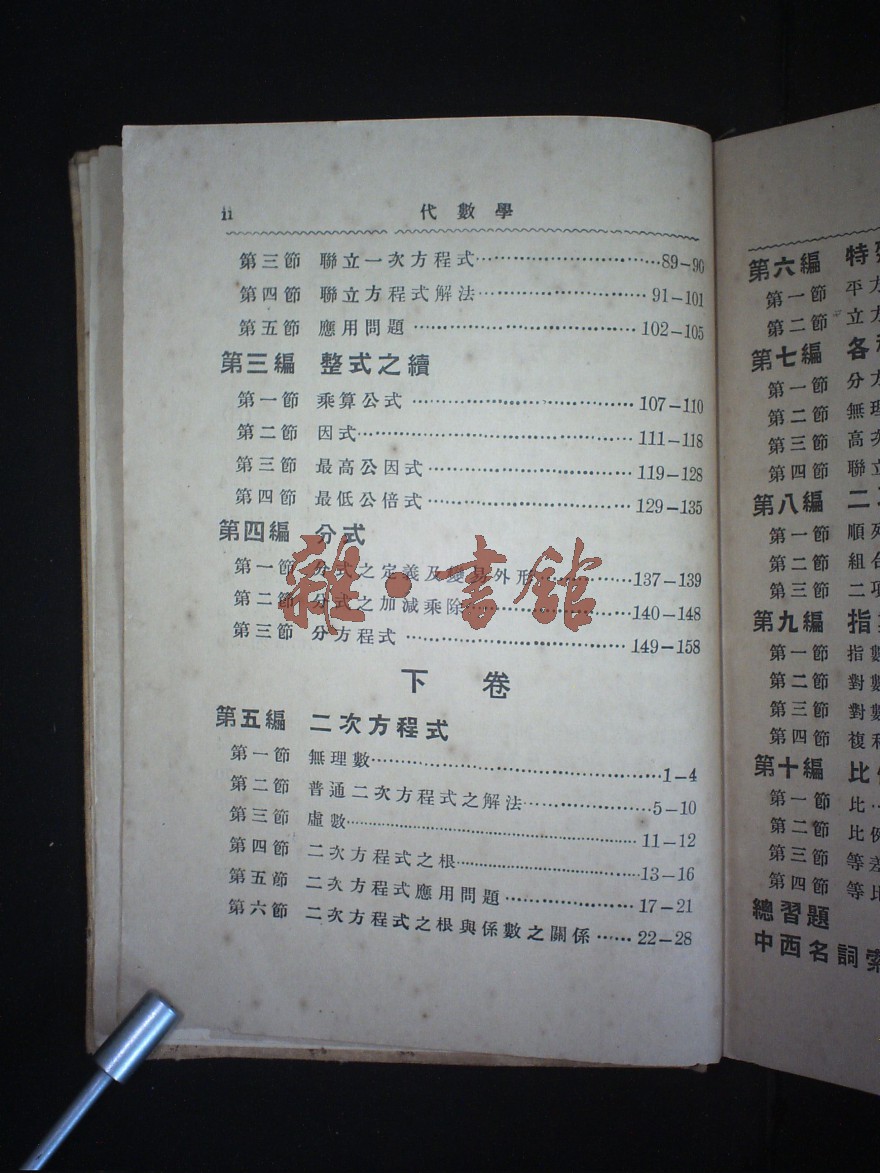 ii 代數學
第三節 聯立一次方程式……89-90
第四節 聯立方程式解法……91-101
第五節 應用問題……102-105
第三編 整式之續
第一節 乘算公式……107-110
第二節 因式……111-118
第三節 最高公因式……119-128
第四節 最低公倍式……129-135
第四編 分式
第一節 分式之定義及變易外形……137-139
第二節 分式之加減乘除……140-148
第三節 分方程式……149-158
雜·書館
下卷
第五編 二次方程式
第一節 無理數……1-4
第二節 普通二次方程式之解法……5-10
第三節 虛數……11-12
第四節 二次方程式之根……13-16
第五節 二次方程式應用問題……17-21
第六節 二次方程式之根與係數之關係……22-28
第六編 特
第一節 平方
第二節 立方
第七編 各
第一節 分方
第二節 無理
第三節 高次
第四節 聯立
第八編 二
第一節 順列
第二節 組合
第三節 二項
第九編 指
第一節 指數
第二節 對數
第三節 對數
第四節 複利
第十編 比
第一節 比…
第二節 比例
第三節 等差
第四節 等比
總習題
中西名詞索